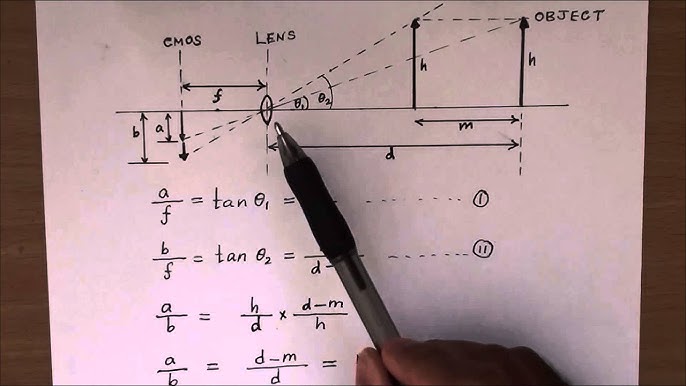 CMOS LENS OBJECT
f θ₁ θ₂ h h
b a m
d
a/f = tan θ₁ = - - - - - - (I)
b/f = tan θ₂ = d- - - - - - - (II)
a/b = h/d × d-m/h
a/b = d-m/d =